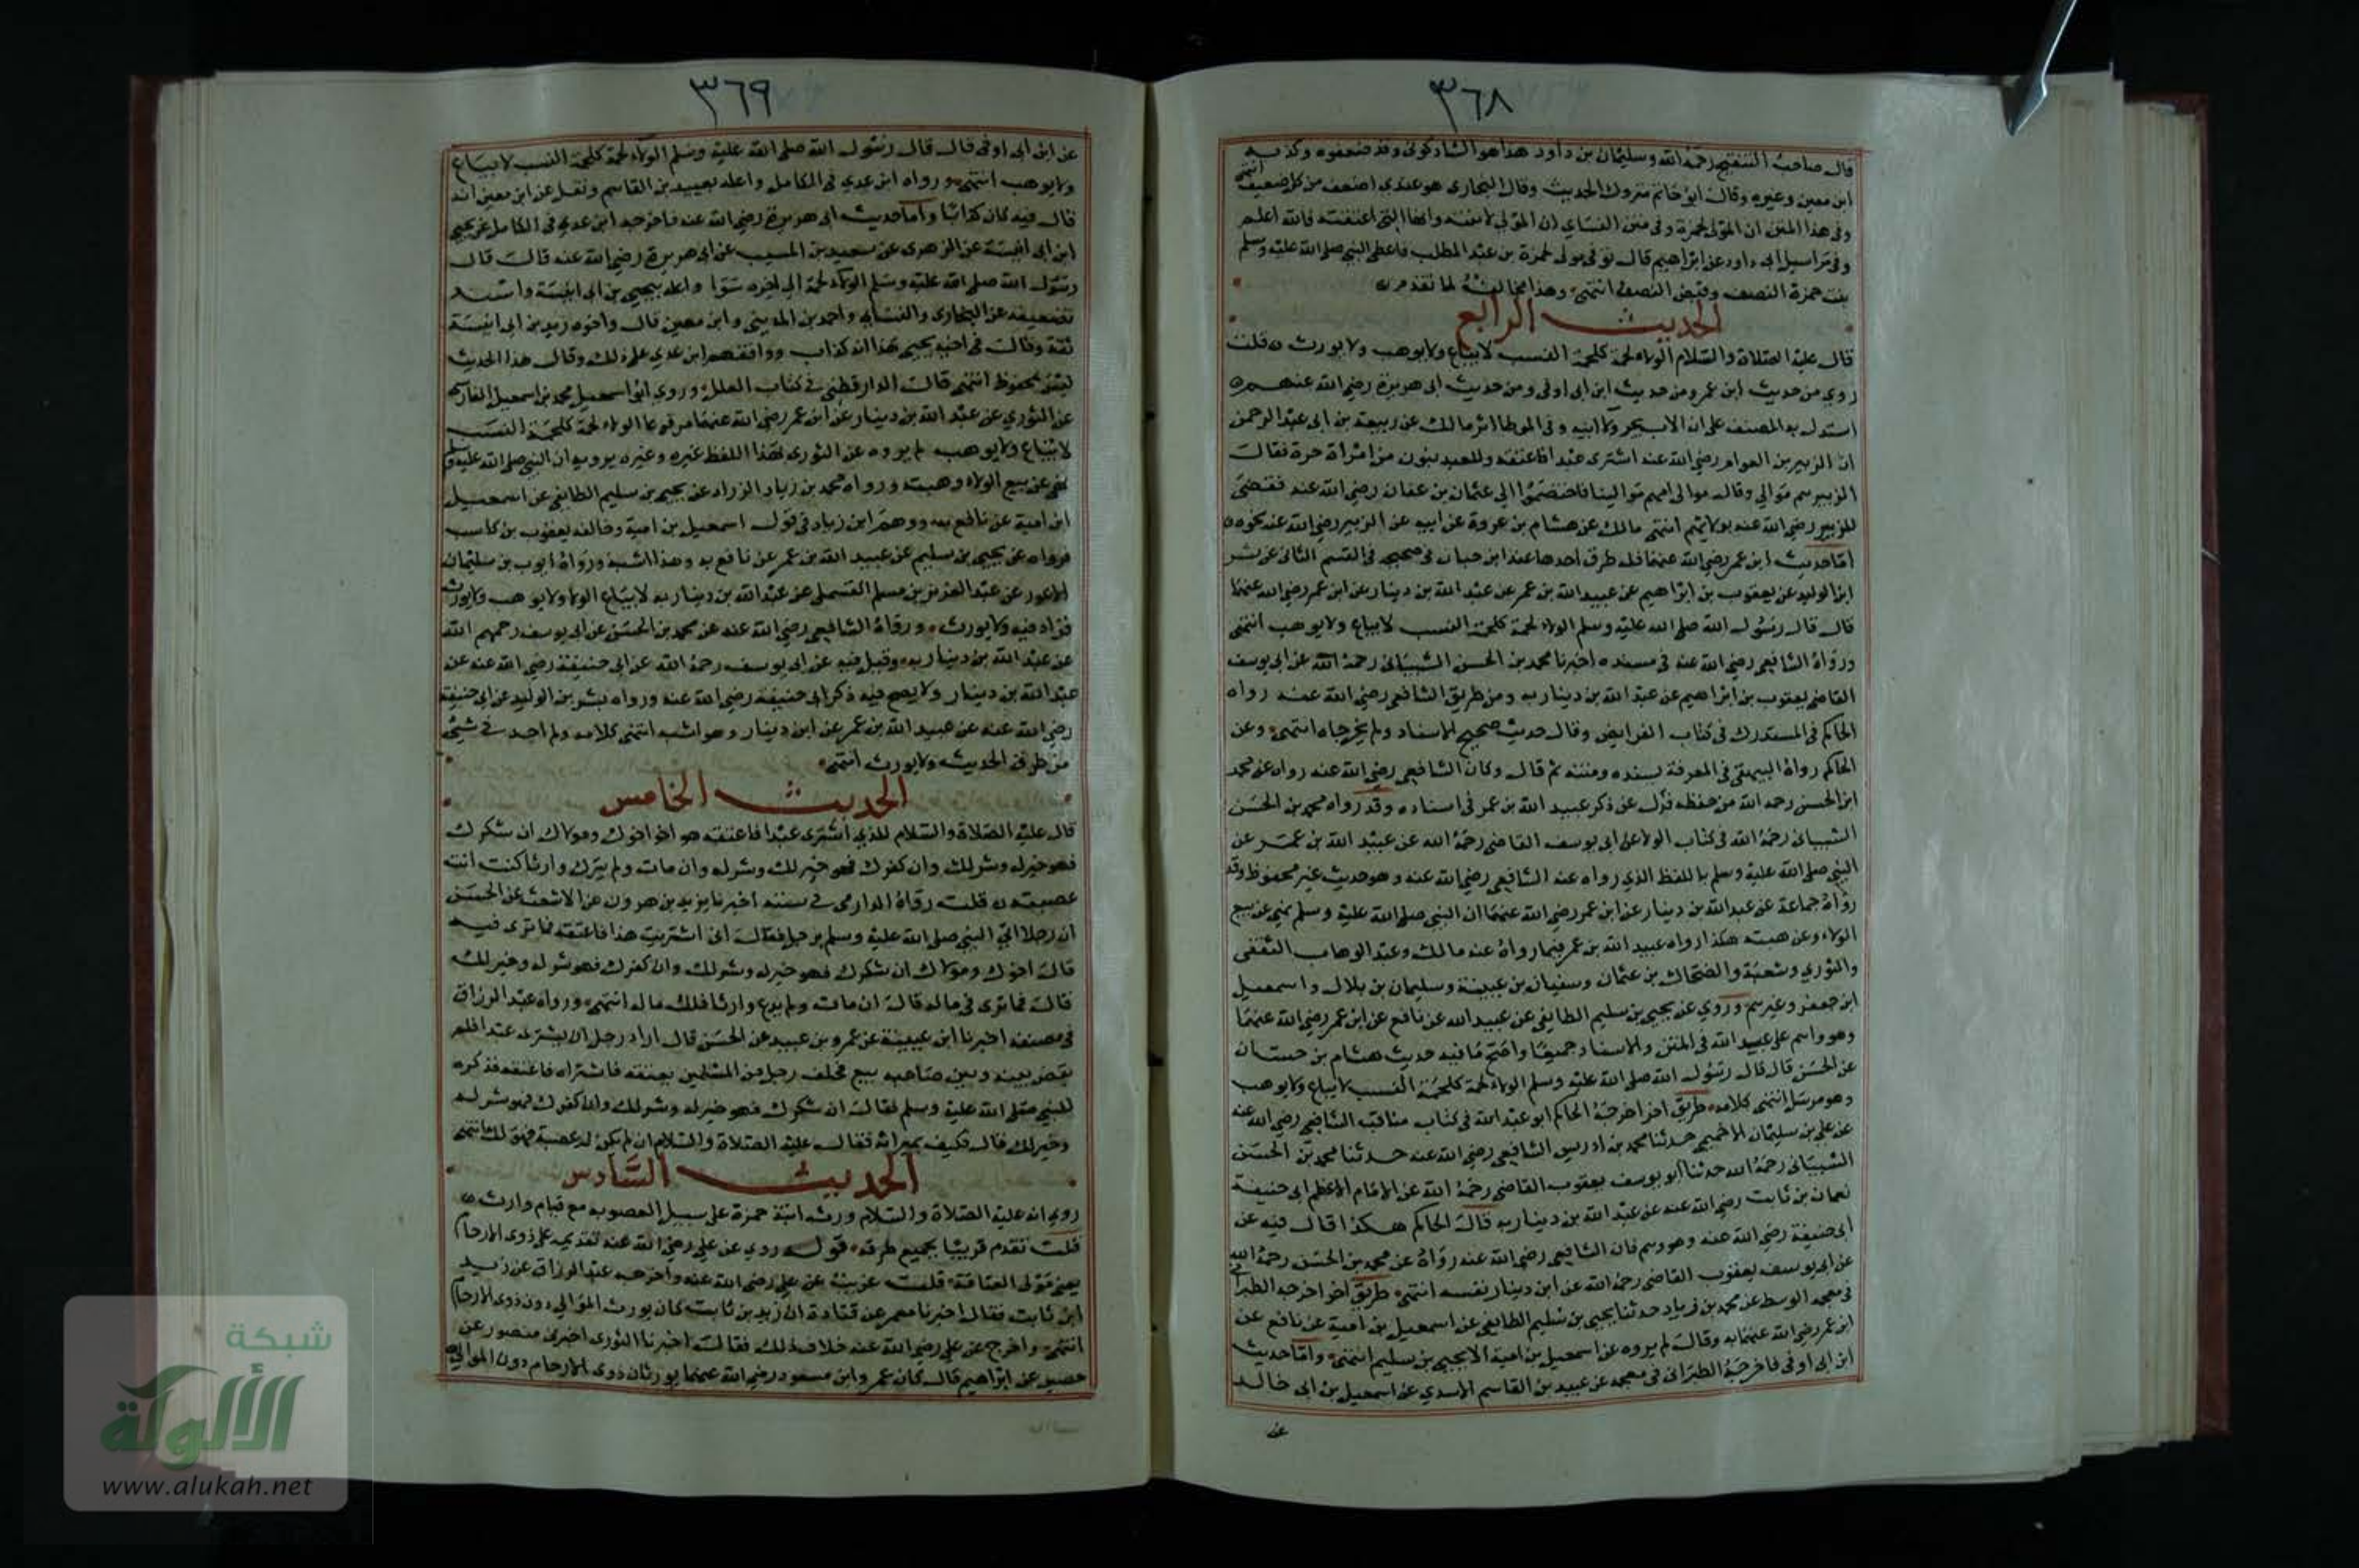 ٣٦٨
قال صاحب التنقيح رحمه الله وسليمان بن داود هذا هو الشاذكوني وقد ضعفوه وكذبه
ابن معين وغيره وقال ابو حاتم متروك الحديث وقال البخاري هو عندي اضعف من كل ضعيف انتهى
وفي هذا المتن ان المولى لحمزة وفي متن النساي ان المولى لابنته وانها التي اعتقته فالله اعلم
وفي مراسيل ابي داود عن ابراهيم قال توفي مولى لحمزة بن عبد المطلب فاعطى النبي صلى الله عليه وسلم
بنت حمزة النصف وقبض النصف انتهى وهذا مخالف لما تقدم
الحديث الرابع
قال عليه الصلاة والسلام الولاء لحمة كلحمة النسب لا يباع ولا يوهب ولا يورث قلت
روي من حديث ابن عمر ومن حديث ابن ابي اوفى ومن حديث ابي هريرة رضي الله عنهم
استدل به المصنف على ان الاب يجر ولاء ابنه وفي الموطا اثر مالك عن ربيعة بن ابي عبد الرحمن
ان الزبير بن العوام رضي الله عنه اشترى عبدا فاعتقه وللعبد بنون من امرأة حرة فقال
الزبير هم موالي وقال موالي امهم موالينا فاختصموا الى عثمان بن عفان رضي الله عنه فقضى
للزبير رضي الله عنه بولائهم انتهى مالك عن هشام بن عروة عن ابيه عن الزبير رضي الله عنه نحوه
اما حديث ابن عمر رضي الله عنهما فله طرق احدها عند ابن حبان في صحيحه في القسم الثاني عن بشر
ابن الوليد عن يعقوب بن ابراهيم عن عبيد الله بن عمر عن عبد الله بن دينار عن ابن عمر رضي الله عنهما
قال قال رسول الله صلى الله عليه وسلم الولاء لحمة كلحمة النسب لا يباع ولا يوهب انتهى
ورواه الشافعي رضي الله عنه في مسنده اخبرنا محمد بن الحسن الشيباني رحمه الله عن ابي يوسف
القاضي يعقوب بن ابراهيم عن عبد الله بن دينار به ومن طريق الشافعي رضي الله عنه رواه
الحاكم في المستدرك في كتاب الفرايض وقال حديث صحيح الاسناد ولم يخرجاه انتهى وعن
الحاكم رواه البيهقي في المعرفة بسنده ومتنه ثم قال وكان الشافعي رضي الله عنه رواه عن محمد
ابن الحسن رحمه الله من حفظه فنزل عن ذكر عبيد الله بن عمر في اسناده وقد رواه محمد بن الحسن
الشيباني رحمه الله في كتاب الولاء عن ابي يوسف القاضي رحمه الله عن عبيد الله بن عمر عن
النبي صلى الله عليه وسلم باللفظ الذي رواه عنه الشافعي رضي الله عنه وهو حديث غير محفوظ وقد
رواه جماعة عن عبد الله بن دينار عن ابن عمر رضي الله عنهما ان النبي صلى الله عليه وسلم نهي عن بيع
الولاء وعن هبته هكذا رواه عبيد الله بن عمر فيما رواه عنه مالك وعبد الوهاب الثقفي
والثوري وشعبة والضحاك بن عثمان وسفيان بن عيينة وسليمان بن بلال واسمعيل
ابن جعفر وغيرهم وروي عن يحيى بن سليم الطايفي عن عبيد الله عن نافع عن ابن عمر رضي الله عنهما
وهو واهم على عبيد الله في المتن والاسناد جميعا واصح ما فيه حديث هشام بن حسان
عن الحسن قال قال رسول الله صلى الله عليه وسلم الولاء لحمة كلحمة النسب لا يباع ولا يوهب
وهو مرسل انتهى كلامه طريق اخر اخرجه الحاكم ابو عبد الله في كتاب مناقب الشافعي رضي الله عنه
عن علي بن سليمان الاخميمي حدثنا محمد بن ادريس الشافعي رضي الله عنه حدثنا محمد بن الحسن
الشيباني رحمه الله حدثنا ابو يوسف يعقوب القاضي رحمه الله عن الامام الاعظم ابي حنيفة
نعمان بن ثابت رضي الله عنه عن عبد الله بن دينار به قال الحاكم هكذا قال فيه عن
ابي حنيفة رضي الله عنه وهو وهم فان الشافعي رضي الله عنه رواه عن محمد بن الحسن رحمه الله
عن ابي يوسف يعقوب القاضي رحمه الله عن ابن دينار نفسه انتهى طريق اخر اخرجه الطبراني
في معجمه الوسط عن محمد بن زياد حدثنا يحيى بن سليم الطايفي عن اسمعيل بن امية عن نافع عن
ابن عمر رضي الله عنهما به وقال لم يروه عن اسمعيل بن امية الا يحيى بن سليم انتهى واما حديث
ابن ابي اوفى فاخرجه الطبراني في معجمه عن عبيد بن القاسم الاسدي عن اسمعيل بن ابي خالد
عن
٣٦٩
عن ابن ابي اوفى قال قال رسول الله صلى الله عليه وسلم الولاء لحمة كلحمة النسب لا يباع
ولا يوهب انتهى ورواه ابن عدي في الكامل واعله بعبيد بن القاسم ونقل عن ابن معين انه
قال فيه كان كذابا واما حديث ابي هريرة رضي الله عنه فاخرجه ابن عدي في الكامل عن يحيى
ابن ابي انيسة عن الزهري عن سعيد بن المسيب عن ابي هريرة رضي الله عنه قال قال
رسول الله صلى الله عليه وسلم الولاء لحمة الى اخره سوا واعله بيحيى بن ابي انيسة واسند
تضعيفه عن البخاري والنسائي واحمد بن المديني وابن معين قال واخوه زيد بن ابي انيسة
ثقة وقال في اخيه يحيى هذا انه كذاب ووافقهم ابن عدي على ذلك وقال هذا الحديث
ليس بمحفوظ انتهى قال الدارقطني في كتاب العلل وروى ابن اسمعيل محمد بن اسمعيل الفارسي
عن الثوري عن عبد الله بن دينار عن ابن عمر رضي الله عنهما مرفوعا الولاء لحمة كلحمة النسب
لا يباع ولا يوهب لم يروه عن الثوري بهذا اللفظ غيره وغيره يرويه ان النبي صلى الله عليه وسلم
نهي عن بيع الولاء وهبته ورواه محمد بن زياد الزراد عن يحيى بن سليم الطايفي عن اسمعيل
ابن امية عن نافع به ووهم ابن زياد في قوله اسمعيل بن امية وخالفه يعقوب بن كاسب
فرواه عن يحيى بن سليم عن عبيد الله بن عمر عن نافع به وهذا اشبه ورواه ايوب بن سليمان
الاعور عن عبد العزيز بن مسلم القسملي عن عبد الله بن دينار به لا يباع الولاء ولا يوهب ولا يورث
فزاد فيه ولا يورث ورواه الشافعي رضي الله عنه عن محمد بن الحسن عن ابي يوسف رحمهم الله
عن عبد الله بن دينار به وقيل فيه عن ابي يوسف رحمه الله عن ابي حنيفة رضي الله عنه عن
عبد الله بن دينار ولا يصح فيه ذكر ابي حنيفة رضي الله عنه ورواه بشر بن الوليد عن ابي حنيفة
رضي الله عنه عن عبيد الله بن عمر عن ابن دينار وهو اشبه انتهى كلامه ولم اجد في شيئ
من طرق الحديث ولا يورث انتهى
الحديث الخامس
قال عليه الصلاة والسلام للذي اشترى عبدا فاعتقه هو اخوك ومولاك ان شكرك
فهو خير له وشر لك وان كفرك فهو خير لك وشر له وان مات ولم يترك وارثا كنت انت
عصبته قلت رواه الدارمي في سننه اخبرنا يزيد بن هرون عن الاشعث عن الحسن
ان رجلا اتى النبي صلى الله عليه وسلم برجل فقال انى اشتريت هذا فاعتقته فما ترى فيه
قال اخوك ومولاك ان شكرك فهو خير له وشر لك وان كفرك فهو شر له وخير لك
قال فما ترى في ماله قال ان مات ولم يدع وارثا فلك ماله انتهى ورواه عبد الرزاق
في مصنفه اخبرنا ابن عيينة عن عمرو بن عبيد عن الحسن قال اراد رجل ان يشترى عبدا فلم
يقض بينه وبين صاحبه بيع فحلف رجل من المسلمين بعتقه فاشتراه فاعتقه فذكره
للنبي صلى الله عليه وسلم فقال ان شكرك فهو خير له وشر لك وان كفرك فهو شر له
وخير لك قال فكيف بميراثه فقال عليه الصلاة والسلام ان لم يكن له عصبة فهو لك انتهى
الحديث السادس
روي انه عليه الصلاة والسلام ورث ابنة حمزة على سبيل العصوبة مع قيام وارث
قلت تقدم قريبا بجميع طرقه قوله روي عن علي رضي الله عنه تقديمه على ذوى الارحام
يعني مولى العتاقة قلت غريب عن علي رضي الله عنه واخرجه عبد الرزاق عن زيد
ابن ثابت فقال اخبرنا معمر عن قتادة ان زيد بن ثابت كان يورث الموالي دون ذوى الارحام
انتهى واخرج عن علي رضي الله عنه خلاف ذلك فقال اخبرنا الثوري اخبرني منصور عن
حصين عن ابراهيم قال كان عمر وابن مسعود رضي الله عنهما يورثان ذوى الارحام دون الموالي
شبكة
الألوكة
www.alukah.net